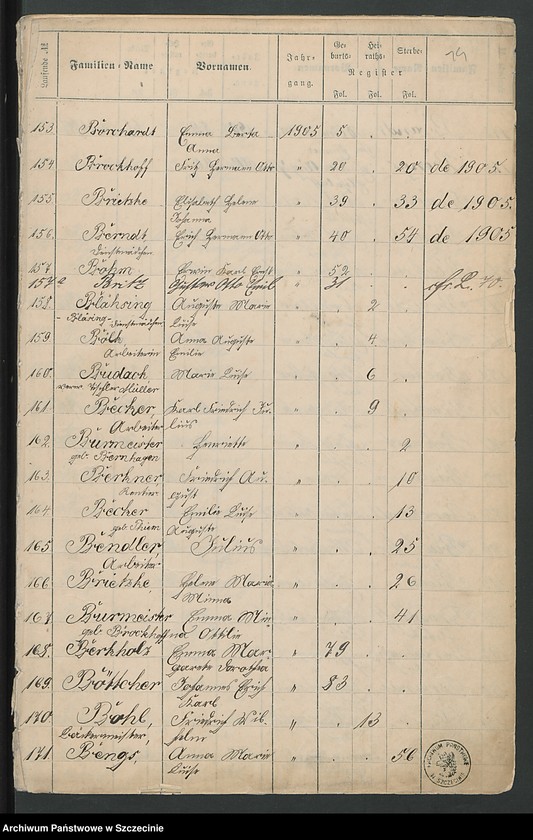 Laufende № Familien-Name Vornamen Jahrgang. Geburts- Heiraths- Sterbe- Register Fol. Fol. Fol. 14
153 Borchardt Emma Berta Anna 1905 5 . .
154 Brockhoff Fritz Hermann Otto " 20 . 20 de 1905.
155. Brietzke Elisabeth Helene Johanna " 39 . 33 de 1905.
156. Berndt Erich Hermann Otto " 40 . 54 de 1905
157. Böhm Erwin Karl Ernst " 52
157a Gustav Otto Emil " 31 . .
158. Blähsing Auguste Marie Luise " . 2 .
-Bläsing-
159. Böth Anna Auguste Emilie " . 4 .
Arbeiterin
160. Budach Marie Luise " . 6 .
Müller
161. Becker, Karl Friedrich Julius " . 9 .
Arbeiter
162. Burmeister Henriette " . . 2
geb. Bernhagen
163. Berkner Friedrich August " . . 10
Rentier
164. Becher Emilie Luise Auguste " . . 13
geb. Thiem
165 Bendler, Julius " . . 25
Arbeiter
166. Brietzke, Helene Marie Minna " . . 26
167. Burmeister Emma Minna Ottilie " . . 41
geb. Brockhoff
168. Berkholz Emma Margarete Dorothea " 79 . .
169. Böttcher Johannes Erich Karl " 83 . .
170 Bohl, Friedrich Wilhelm " . 13 .
Bäckermeister,
171. Bengs, Anna Marie Luise " . . 56
ARCHIWUM PAŃSTWOWE W SZCZECINIE
Archiwum Państwowe w Szczecinie